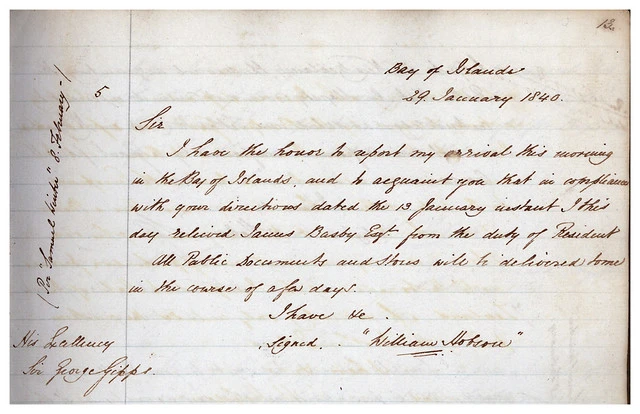 12
Bay of Islands
29 January 1840.
5
Sir
I have the honor to report my arrival this morning
in the Bay of Islands, and to acquaint you that in compliance
with your directions dated the 13 January instant I this
day relieved James Busby Esqr. from the duty of Resident
All Public Documents and Stores will be delivered to me
in the course of a few days.
I have &c.
Signed. "William Hobson"
His Excellency
Sir George Gipps.
(Per "Samuel Winter" 8. February -)